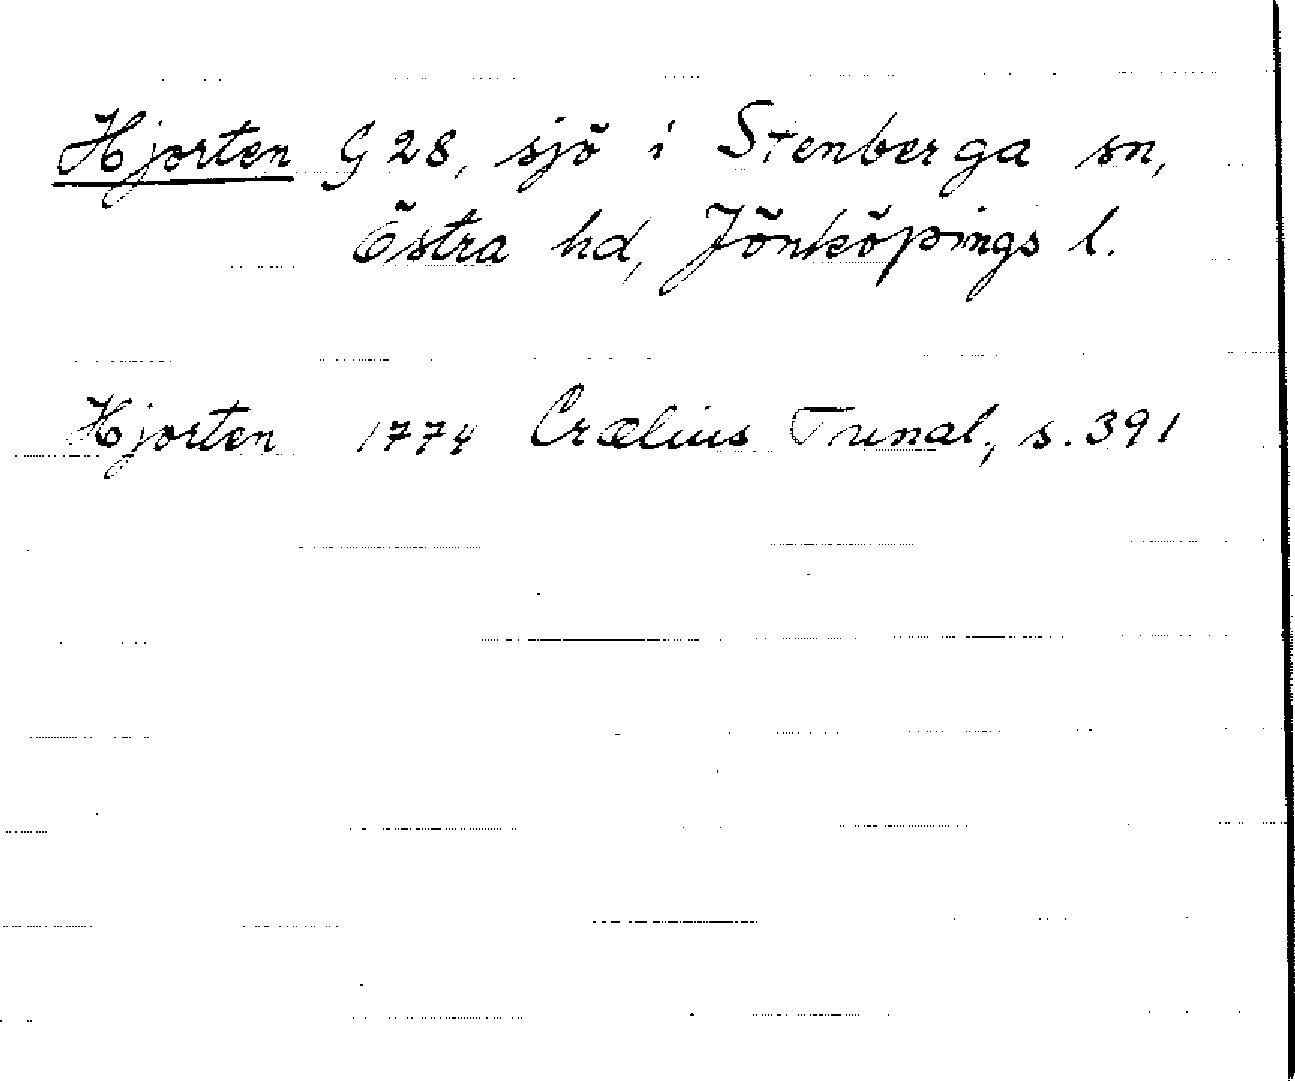 Hjorten G 28, sjö i Stenberga sn,
Östra hd, Jönköpings l.
Hjorten 1774 Crælius Trunal, s. 391